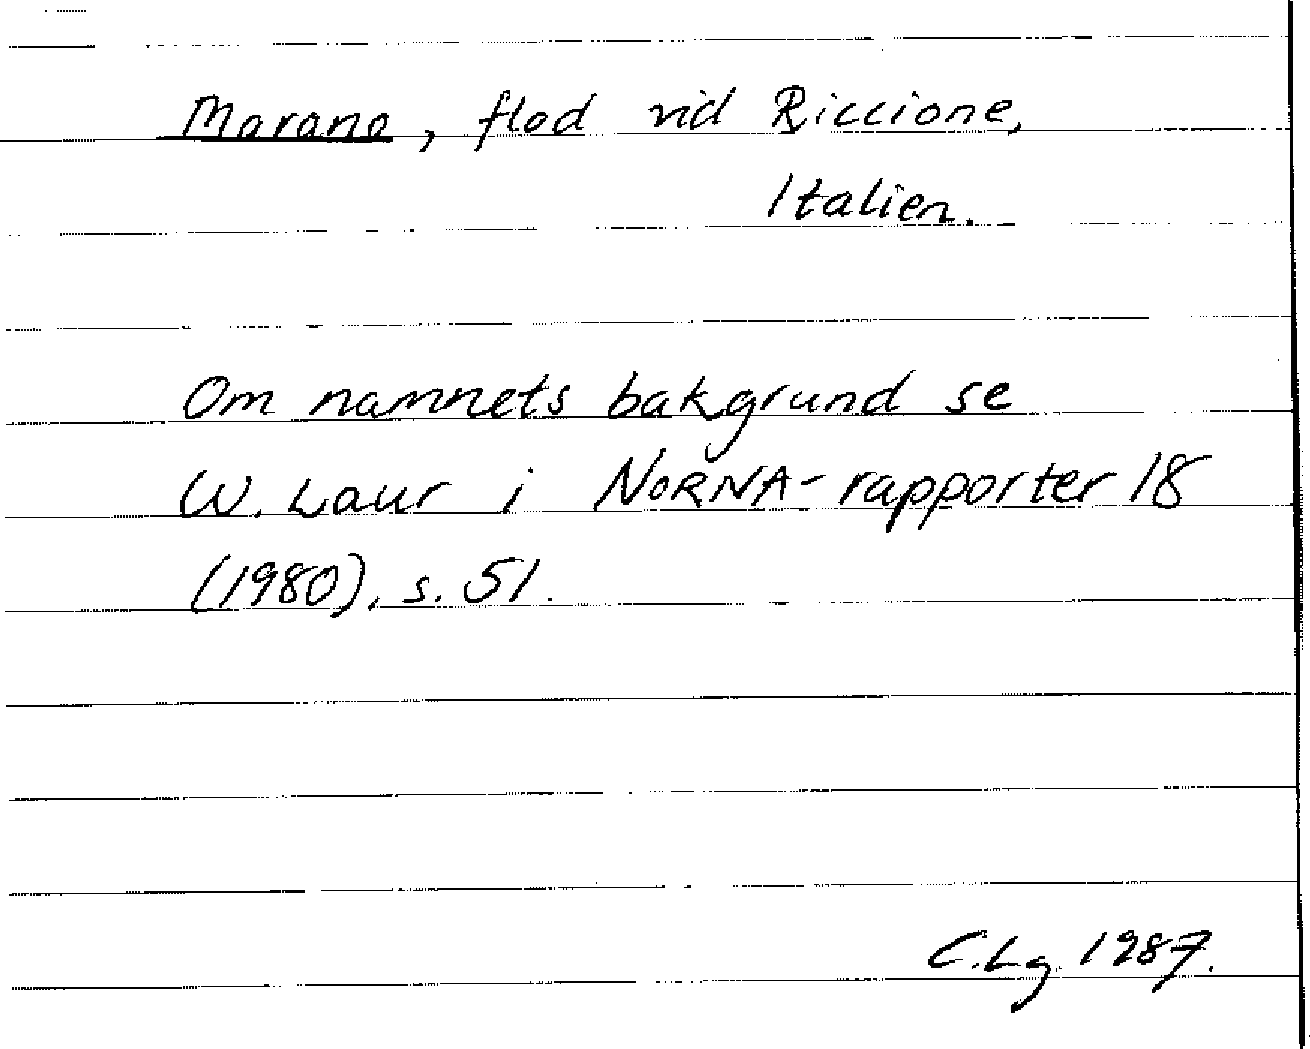 Marano, flod vid Riccione,
Italien.
Om namnets bakgrund se
W. Laur i NORNA-rapporter 18
(1980), s. 51.
C.Lg. 1987.